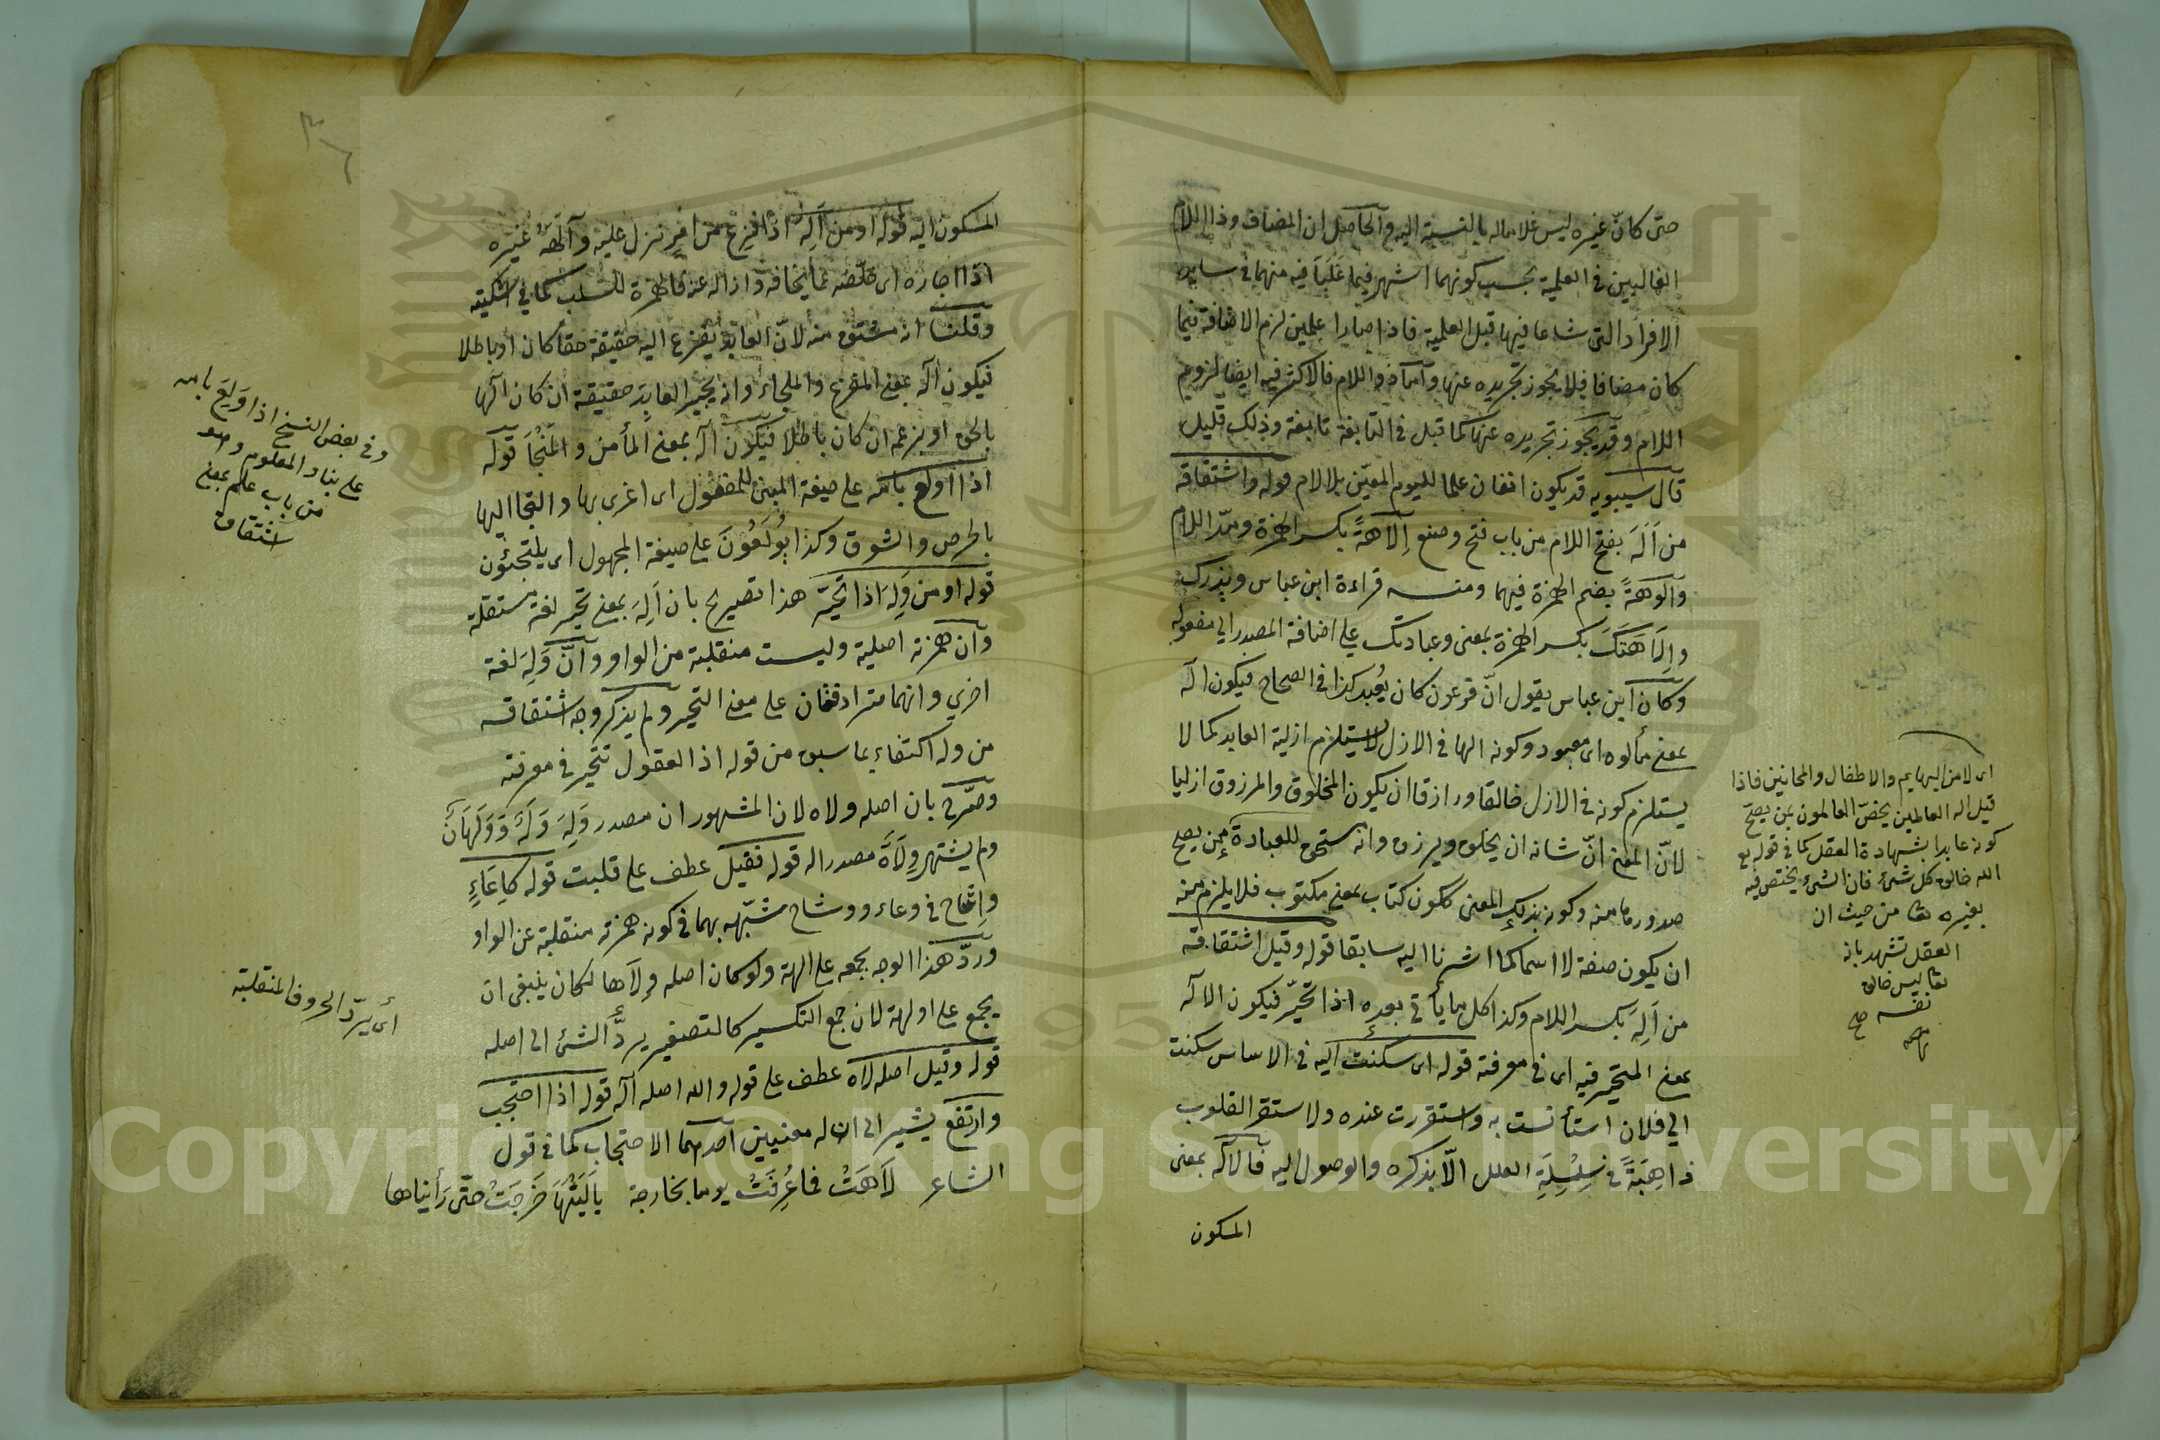 حتى كان غيره ليس غلاما له بالنسبة اليه والحاصل ان المضاف وذا اللام
الغالبين في العلمية بحسب كونهما اشهر فيما غلبا فيه منهما في ساير
الافراد التي شاعا فيها قبل العلمية فاذا صارا علمين لزم الاضافة فيما
كان مضافا فلا يجوز تجريده عنها واما ذو اللام فالاكثر فيه ايضا لزوم
اللام وقد يجوز تجريده عنها كما قيل في النابغة نابغة وذلك قليل
قال سيبويه قد يكون اثنان علما لليوم المعين بلا لام قوله واشتقاقه
من اَلَهَ بفتح اللام من باب فتح وصنع اِلَاهَةً بكسر الهمزة ومد اللام
وألوهةً بضم الهمزة فيهما ومنه قراءة ابن عباس ويذرك
وإلاهَتَكَ بكسر الهمزة بمعنى وعبادتك على اضافة المصدر الى مفعوله
وكان ابن عباس يقول انّ فرعون كان يُعبد كذا في الصحاح فيكون اله
بمعنى مألوه اى معبود وكونه الها في الازل لا يستلزم ازلية العابد كما لا
يستلزم كونه في الازل خالقا ورازقا ان يكون المخلوق والمرزوق ازليا
لانّ المعنى انّ شانه ان يخلق ويرزق وانه مستحق للعبادة ممن يصح
صدورها منه وكونه بذلك المعنى ككون كتاب بمعنى مكتوب فلا يلزم منه
ان يكون صفة لا اسما كما اشرنا اليه سابقا قوله وقيل اشتقاقه
من اَلِهَ بكسر اللام وكذا كل ما يأتي بعده اذا تحيّر فيكون الاله
بمعنى المتحير فيه اى في معرفته قوله اى سكنت اليه في الاساس سكنت
الى فلان استأنست به واستقررت عنده ولا ستقر القلوب
ذاهِبَةً في سِلْسِلَةِ العلل الاّ بذكره والوصول اليه فالاله بمعنى
المسكون
اى لا من البهايم والاطفال والمجانين فاذا
قيل اله العالمين يخصّ العالمون بمن يصحّ
كونه عابدا بشهادة العقل كما في قوله تع
الله خالق كل شئ فان الشئ يختص فيه
بغيره تعا من حيث ان
العقل تشهد بانه
تعا ليس خالق
نفسه صح
منه
المسكون اليه قوله او من اَلِهَ اذا فزع من امر نزل عليه وآلهه غيره
اذا اجاره اى خلّصه مما يخافه وازاله عنه فالهمزة للسلب كما في اشكيته
وقلنا انه مشتق منه لانّ العابد يفزع اليه حقيقة حقا كان او باطلا
فيكون اله بمعنى المفزع والملجاء وانه يجير العابد حقيقة ان كان الها
بالحق او بزعمه ان كان باطلا فيكون اله بمعنى المأمن والمنجأ قوله
اذا اولع بامه على صيغة المبنى للمفعول اى اغرى بها والتجا اليها
بالحرص والشوق وكذا يُولَعُونَ على صيغة المجهول اى يلتجئون
قوله او من وَلِهَ اذا تحيّر هذا تصريح بان اَلِهَ بمعنى تحير لغة مستقلة
وان همزته اصلية وليست منقلبة من الواو وانّ وَلِهَ لغة
اخرى وانهما مترادفتان على معنى التحير ولم يذكر وجه اشتقاقه
من وله اكتفاء بما سبق من قوله اذ العقول تتحير في معرفته
وصرّح بان اصله ولاه لان المشهور ان مصدر وَلِهَ وَلَهٌ ووَلَهَانٌ
ولم يشتهر وِلَاهٌ مصدرا له قوله فقيل عطف على قلبت قوله كاِعَاءٍ
واِشاح في وعاء ووشاح شبّهه بهما في كون همزته منقلبة عن الواو
وردّ هذا الوجه بجمعه على الهة ولو كان اصله وِلَاها لكان ينبغى ان
يجمع على اولهة لان جمع التكسير كالتصغير يردُّ الشئ الى اصله
قوله وقيل اصله لاه عطف على قوله والله اصله اله قوله اذا احتجب
وارتفع يشير الى ان له معنيين احدهما الاحتجاب كما في قول
الشاعر لَاهَتْ فما عُرِفَتْ يوما بخارجة ياليتها خَرَجَتْ حتّى رَأيناها
وفي بعض النسخ اذا وَلِعَ بامه
على بناء المعلوم وهو
من باب علم بمعنى
اشتقاق
أى يردّ الحروف المنقلبة
Copyright © King Saud University